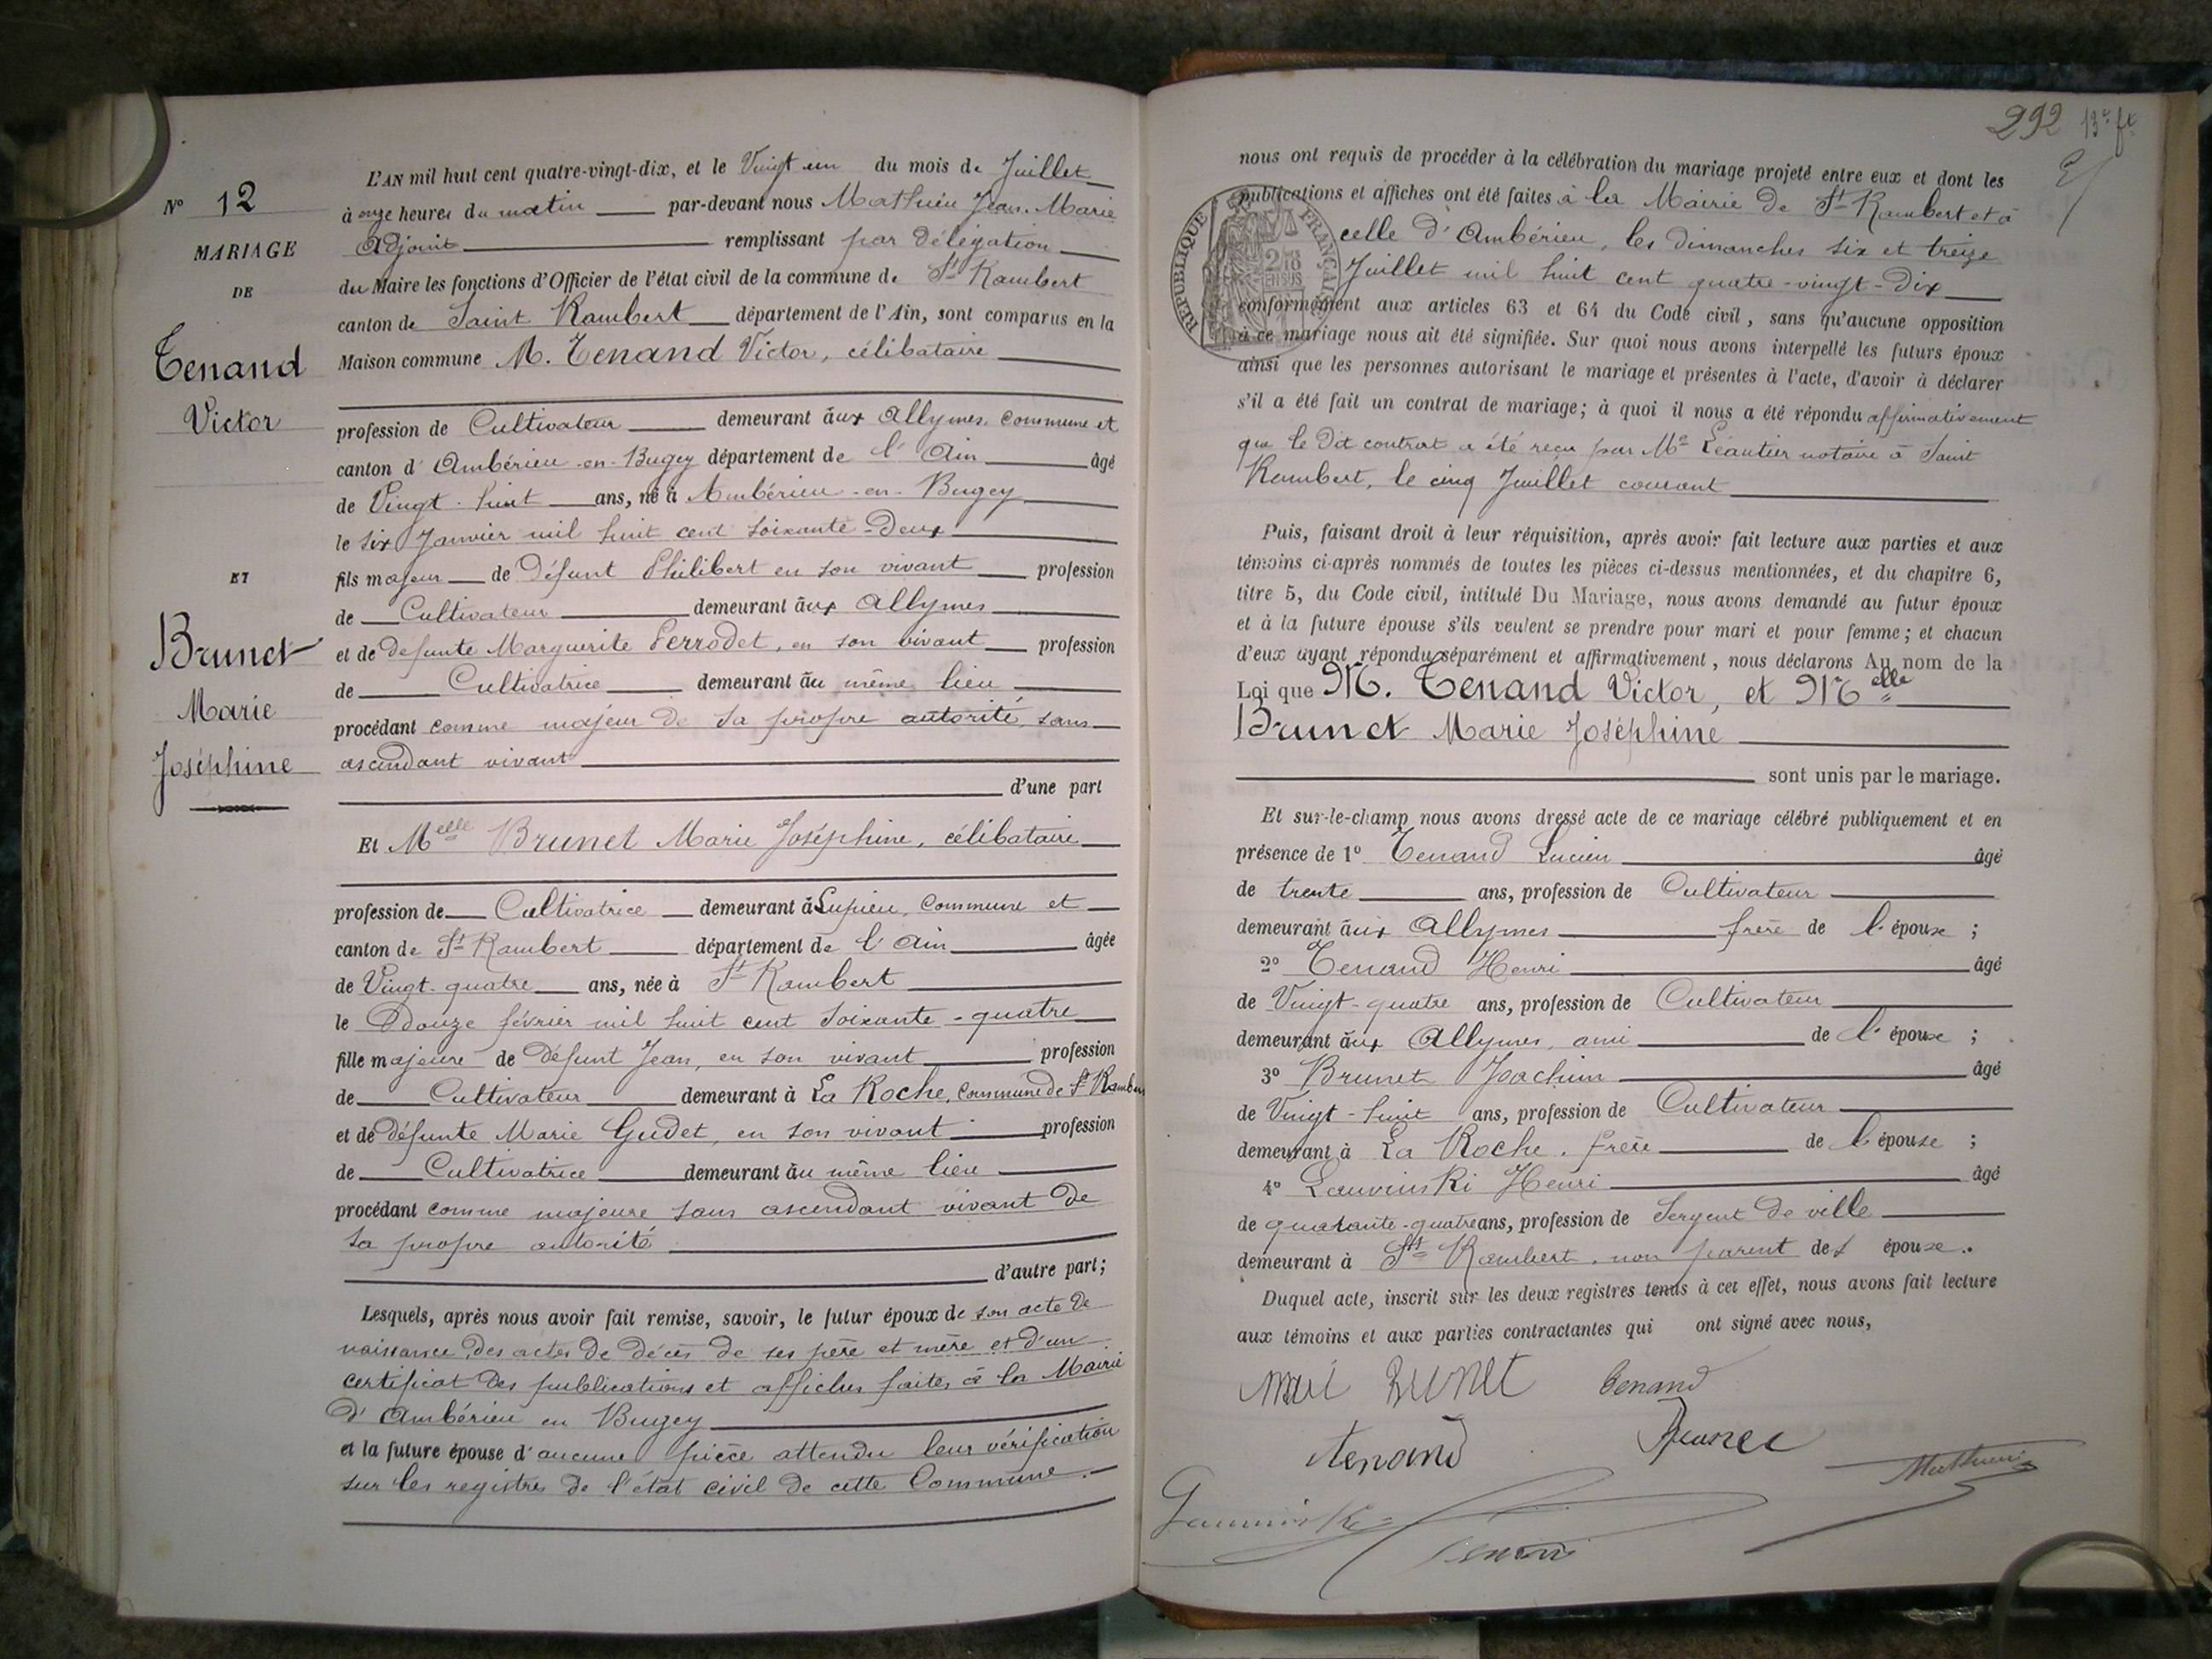 N° 12
MARIAGE
DE
Tenand
Victor
ET
Brunet
Marie
Joséphine
L'AN mil huit cent quatre-vingt-dix, et le Vingt un du mois de Juillet
à onze heures du matin par-devant nous Mathieu Jean-Marie
Adjoint remplissant par délégation
du Maire les fonctions d'Officier de l'état civil de la commune de St Rambert
canton de Saint Rambert département de l'Ain, sont comparus en la
Maison commune M. Tenand Victor, célibataire
profession de Cultivateur demeurant àux Allymes, commune et
canton d'Ambérieu-en-Bugey département de l'Ain âgé
de Vingt-huit ans, né à Ambérieu-en-Bugey
le six Janvier mil huit cent soixante-deux
fils majeur de défunt Philibert en son vivant profession
de Cultivateur demeurant àux Allymes
et de defunte Marguerite Perrodet, en son vivant profession
de Cultivatrice demeurant àu même lieu
procédant comme majeur de sa propre autorité, sans
ascendant vivant
d'une part
Et Melle Brunet Marie Joséphine, célibataire
profession de Cultivatrice demeurant à Lupieu, commune et
canton de St Rambert département de l'Ain âgée
de Vingt-quatre ans, née à St Rambert
le Douze février mil huit cent soixante-quatre
fille majeure de défunt Jean, en son vivant profession
de Cultivateur demeurant à La Roche, commune de St Rambert
et de défunte Marie Gudet, en son vivant profession
de Cultivatrice demeurant àu même lieu
procédant comme majeure sans ascendant vivant de
sa propre autorité
d'autre part;
Lesquels, après nous avoir fait remise, savoir, le futur époux de son acte de
naissance, des actes de décès de ses père et mère et d'un
certificat des publications et affiches faites à la Mairie
d'Ambérieu en Bugey
et la future épouse d'aucune pièce attendu leur vérification
sur les registres de l'état civil de cette Commune.
292 13e ft
nous ont requis de procéder à la célébration du mariage projeté entre eux et dont les
publications et affiches ont été faites à la Mairie de St Rambert et à
celle d'Ambérieu, les dimanches six et treize
Juillet mil huit cent quatre-vingt-dix
RÉPUBLIQUE FRANÇAISE
conformément aux articles 63 et 64 du Code civil, sans qu'aucune opposition
à ce mariage nous ait été signifiée. Sur quoi nous avons interpellé les futurs époux
ainsi que les personnes autorisant le mariage et présentes à l'acte, d'avoir à déclarer
s'il a été fait un contrat de mariage; à quoi il nous a été répondu affirmativement
que le dit contrat a été reçu par Me Léautier notaire à Saint
Rambert, le cinq Juillet courant
Puis, faisant droit à leur réquisition, après avoir fait lecture aux parties et aux
témoins ci-après nommés de toutes les pièces ci-dessus mentionnées, et du chapitre 6,
titre 5, du Code civil, intitulé Du Mariage, nous avons demandé au futur époux
et à la future épouse s'ils veulent se prendre pour mari et pour femme; et chacun
d'eux ayant répondu séparément et affirmativement, nous déclarons Au nom de la
Loi que M. Tenand Victor, et Melle
Brunet Marie Joséphine
sont unis par le mariage.
Et sur-le-champ nous avons dressé acte de ce mariage célébré publiquement et en
présence de 1° Tenand Lucien âgé
de trente ans, profession de Cultivateur
demeurant àux Allymes frère de l'époux ;
2° Tenand Henri âgé
de Vingt-quatre ans, profession de Cultivateur
demeurant àux Allymes, ami de l'époux ;
3° Brunet Joachim âgé
de Vingt-huit ans, profession de Cultivateur
demeurant à La Roche, frère de l'épouse ;
4° Lauvinski Henri âgé
de quarante-quatre ans, profession de Sergent de ville
demeurant à St Rambert, non parent des époux.
Duquel acte, inscrit sur les deux registres tenus à cet effet, nous avons fait lecture
aux témoins et aux parties contractantes qui ont signé avec nous,
Tenand
Tenand
Brunet
Mathieu